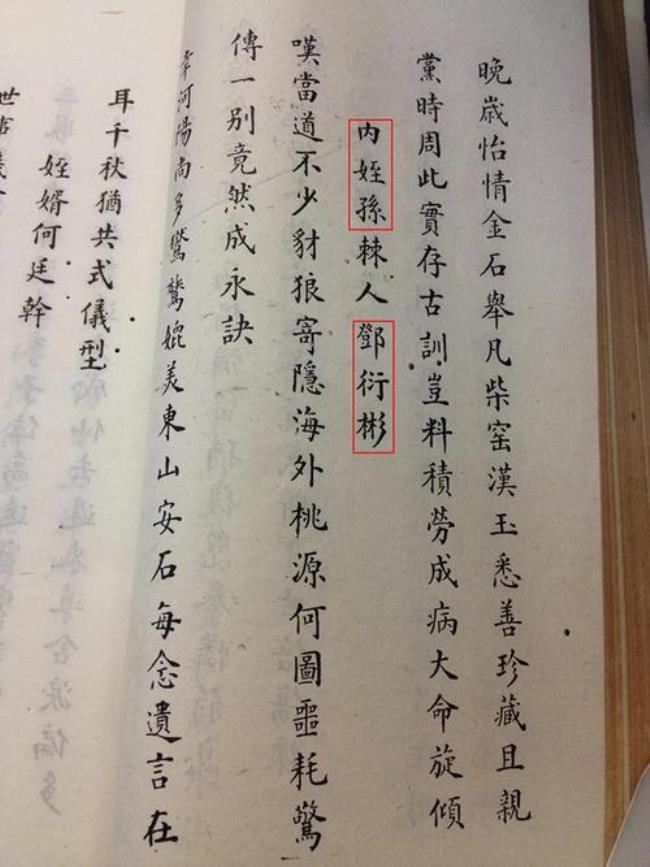 晚歲怡情金石舉凡柴窑漢玉悉善珍藏且親
黨時周此實存古訓豈料積勞成病大命旋傾
内姪孫棘人鄧衍彬
嘆當道不少豺狼寄隱海外桃源何圖噩耗驚
傳一别竟然成永訣
河陽尚多鸞媲美東山安石每念遺言在
耳千秋猶共式儀型
姪婿何廷幹
世事